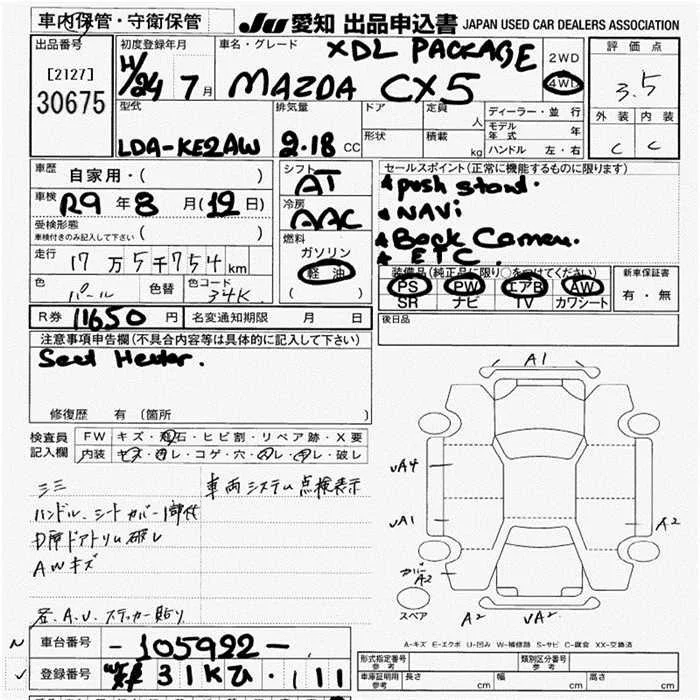 車内保管・守衛保管
JU 愛知 出品申込書 JAPAN USED CAR DEALERS ASSOCIATION
出品番号
[2127]
30675
初度登録年月
H/24 7月
車名・グレード
XDL PACKAGE
MAZDA CX5
2WD
4WD
評価点
3.5
外装 内装
C C
型式
LDA-KE2AW
排気量
2.18 CC
ドア
定員
人
形状
積載
kg
ディーラー・並行
モデル年式 年
ハンドル 左・右
車歴
自家用・( )
車検
R9年8月(12日)
受検形態
車検付きのみ記入して下さい ( )
走行
17万5千754km
色
パール
色替
色コード
34K
シフト
AT
冷房
AAC
燃料
ガソリン
軽油
( )
セールスポイント(正常に機能するものに限ります)
★ push start.
★ NAVi
★ Back Camera.
★ ETC.
装備品(純正品に限り○をつけてください)
PS PW エアB AW
SR ナビ TV カワシート
新車保証書
有・無
R券 11650円
名変通知期限 月 日
後日品
注意事項申告欄(不具合内容等は具体的に記入して下さい)
Seat Heater.
修復歴 有(箇所
検査員記入欄
FW キズ・飛石・ヒビ割・リペア跡・X要
内装 キズ・凹レ・コゲ・穴・汚レ・切レ・破レ
車両システム点検表示
ハンドル、シートカバー1部付
D席ドアトリム破レ
AWキズ
ステッカー貼り
A1
UA4
UA1
A2
カバー
A2
スペア
A2
UA2
A-キズ E-エクボ U-凹み W-補修跡 S-サビ C-腐食 XX-交換済
車台番号
-105922-
登録番号
31Kひ・111
形式指定番号
参考
類別区分番号
参考
車庫証明用
参考
長さ cm
幅 cm
高さ cm